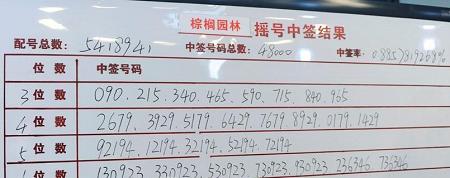 棕榈园林 摇号中签结果
配号总数: 5418941 中签号码总数: 48000 中签率: 0.8857819268%
位数 中签号码
3 位数 090. 215. 340. 465. 590. 715. 840. 965
4 位数 2679. 3929. 5179. 6429. 7679. 8929. 0179. 1429
5 位数 92194. 12194. 32194. 52194. 72194
位数 130923. 330923. 530923. 730923. 930923. 236346. 736346